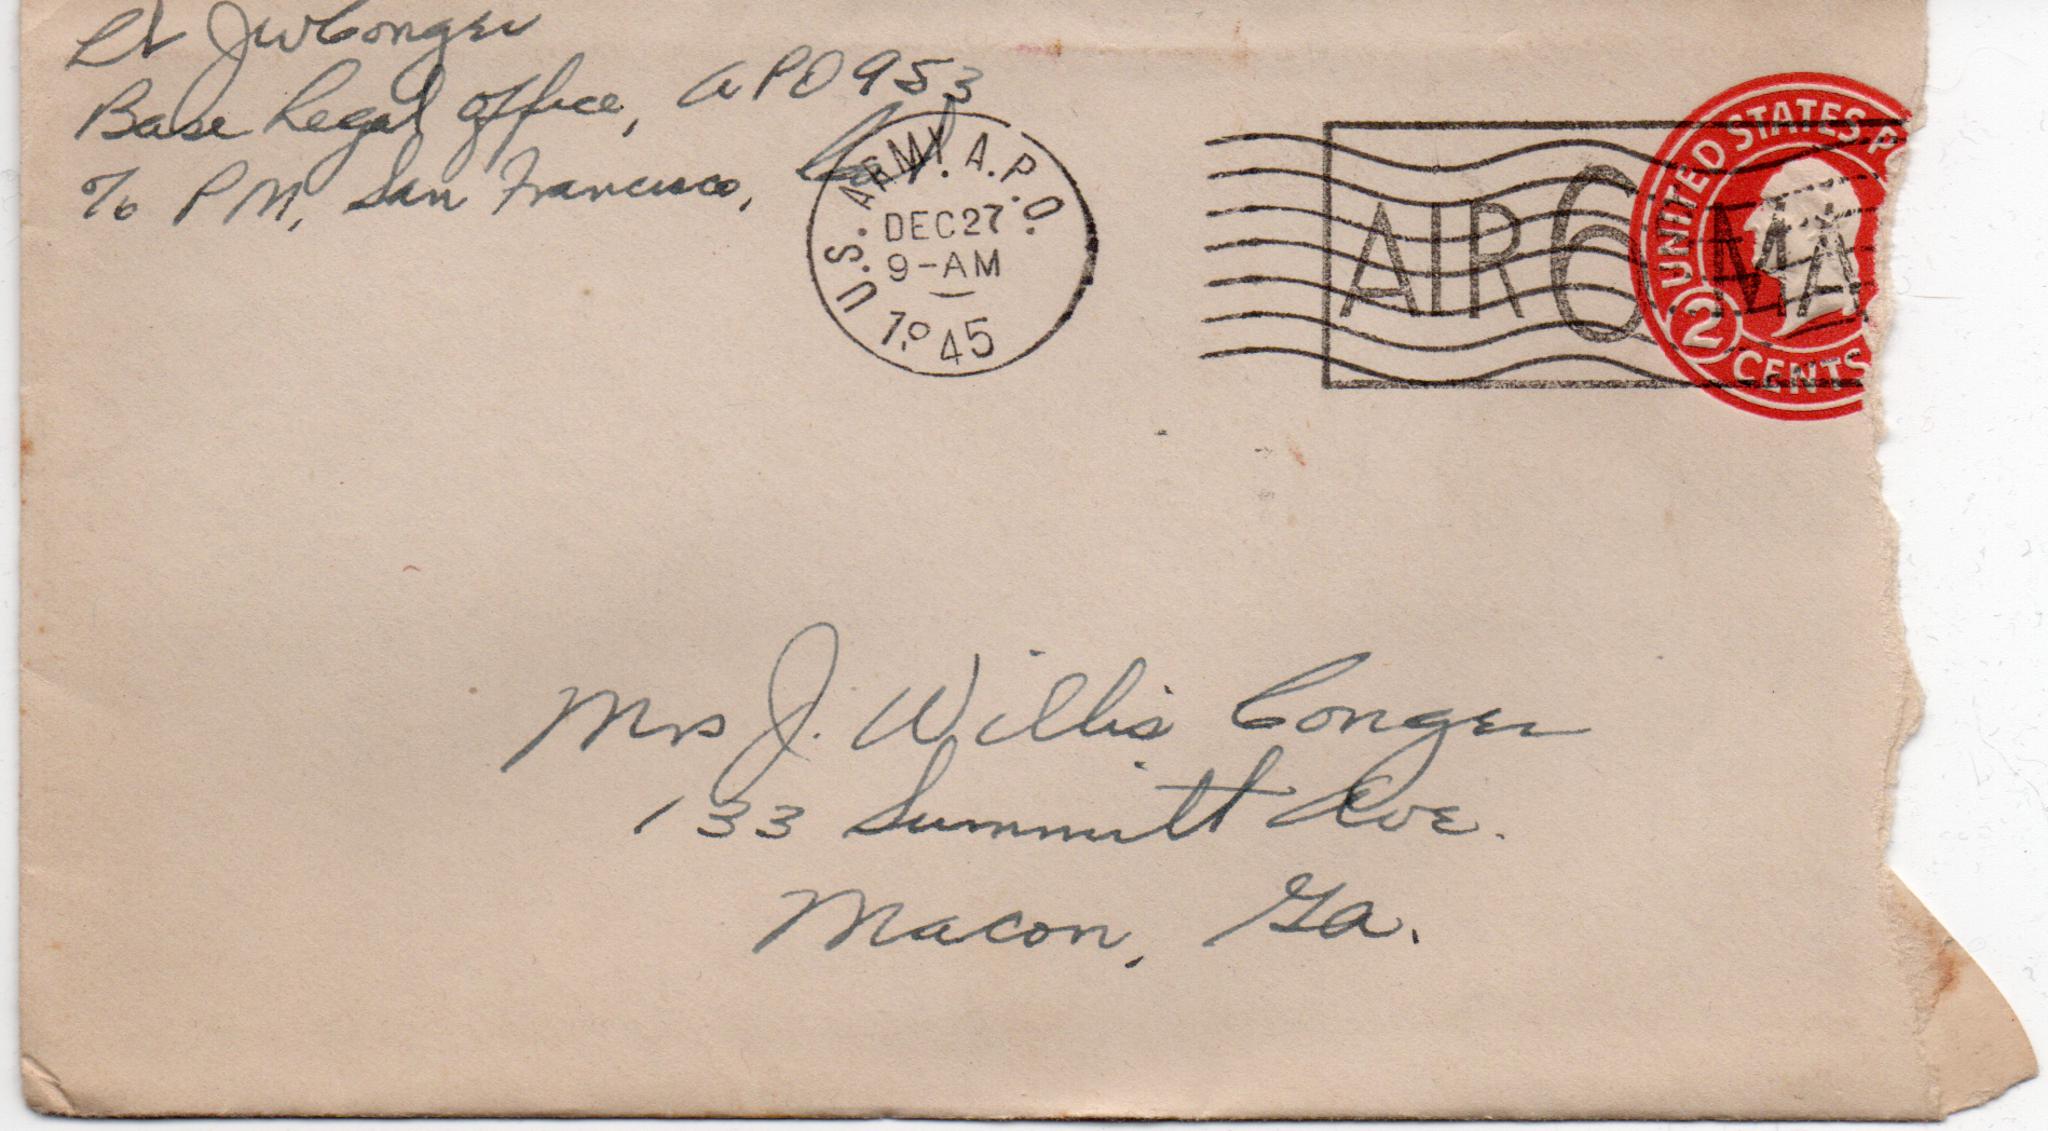 Lt JW Conger
Base Legal Office, APO 953
c/o PM, San Francisco, Calif.
U.S. ARMY. A.P.O.
DEC 27
9-AM
1945
AIR 6 MA
UNITED STATES PO
2 CENTS
Mrs J. Willis Conger
133 Summitt Ave.
Macon, Ga.